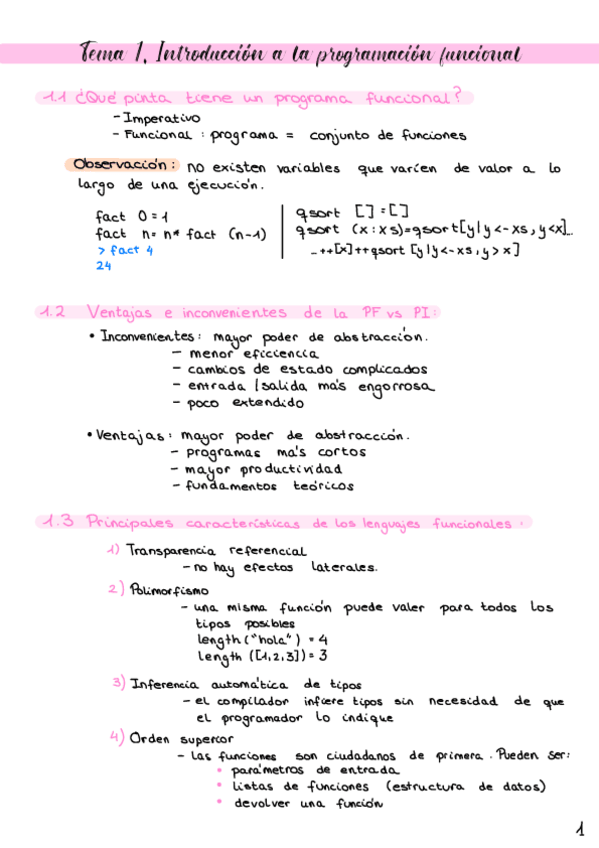 Tema 1. Introducción a la programación funcional
1.1 ¿Qué pinta tiene un programa funcional?
- Imperativo
- Funcional : programa = conjunto de funciones
Observación: no existen variables que varíen de valor a lo
largo de una ejecución.
fact 0 = 1
fact n = n * fact (n-1)
> fact 4
24
qsort [] = []
qsort (x:xs) = qsort [y|y <- xs, y<x]...
...++[x]++qsort [y|y<-xs, y>x]
1.2 Ventajas e inconvenientes de la PF vs PI:
• Inconvenientes: mayor poder de abstracción.
- menor eficiencia
- cambios de estado complicados
- entrada / salida más engorrosa
- poco extendido
• Ventajas: mayor poder de abstracción.
- programas más cortos
- mayor productividad
- fundamentos teóricos
1.3 Principales características de los lenguajes funcionales:
1) Transparencia referencial
- no hay efectos laterales.
2) Polimorfismo
- una misma función puede valer para todos los
tipos posibles
length ("hola") = 4
length ([1,2,3]) = 3
3) Inferencia automática de tipos
- el compilador infiere tipos sin necesidad de que
el programador lo indique
4) Orden superior
- las funciones son ciudadanos de primera. Pueden ser:
• parámetros de entrada
• listas de funciones (estructura de datos)
• devolver una función
1